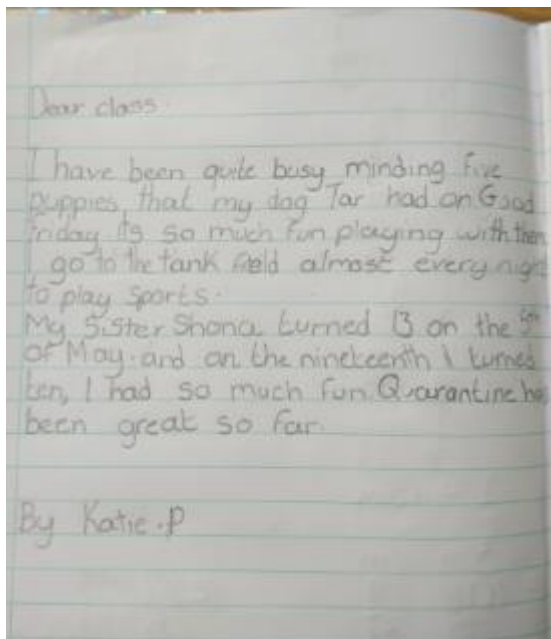 Dear class.
I have been quite busy minding five
puppies, that my dog Tar had on Good
Friday its so much fun playing with them
I go to the tank field almost every night
to play sports.
My Sister Shona turned 13 on the 5th
of May. and on the nineteenth I turned
ten, I had so much fun Quarantine has
been great so far
By Katie.P